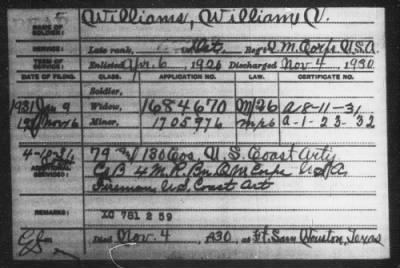 NAME OF SOLDIER: Williams, William V.
SERVICE: Late rank, Det, Reg't Q M Corps U.S.A.
TERM OF SERVICE: Enlisted Apr. 6, 1926 Discharged Nov-4, 1930
DATE OF FILING. CLASS. APPLICATION NO. LAW. CERTIFICATE NO.
Soldier,
1931 Jan 9 Widow, 1684670 M/26 A-8-11-31
Nov 6 Minor, 1705976 M/26 a-1-23-32
79 130 Cos, U.S. Coast Arty
SERVICES: Co B 4 M.R. Bn Q M Corps U S A,
Fireman, U.S. Coast Art
REMARKS: XC 781 2 59
Died Nov. 4, 1930, at Ft. Sam Houston, Texas